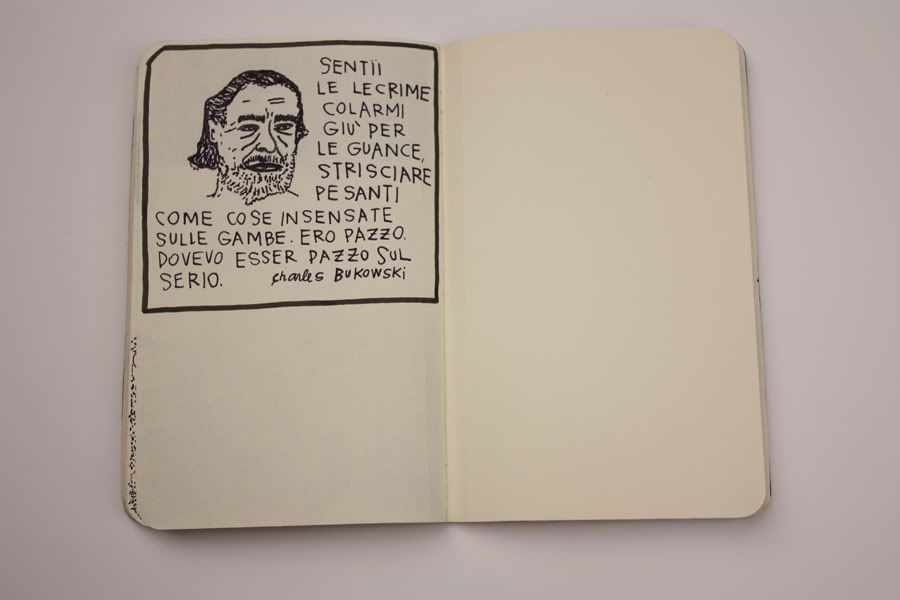 SENTÏI
LE LECRIME
COLARMI
GIU' PER
LE GUANCE,
STRISCIARE
PESANTI
COME COSE INSENSATE
SULLE GAMBE. ERO PAZZO.
DOVEVO ESSER PAZZO SUL
SERIO. Charles BUKOWSKi